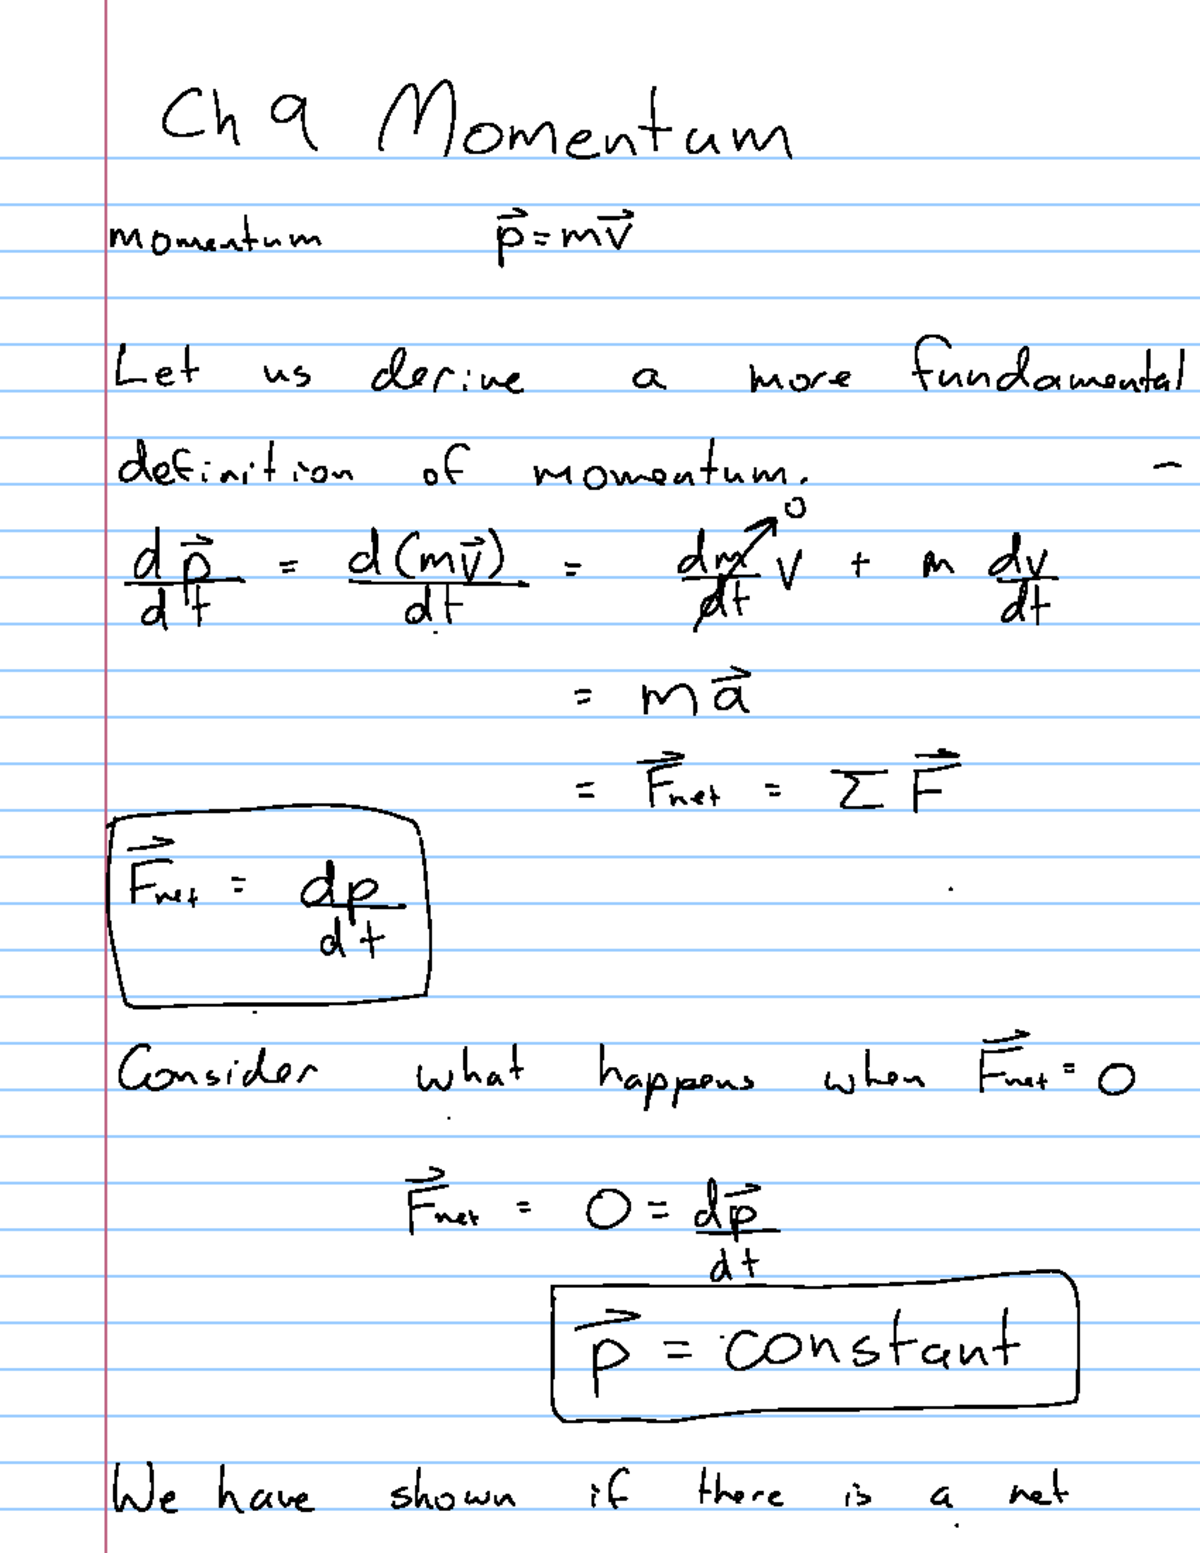 Ch 9 Momentum
momentum p⃗ = mv⃗
Let us derive a more fundamental
definition of momentum.
dp⃗/dt = d(mv⃗)/dt = dm/dt v + m dv/dt
0
= ma⃗
= F⃗net = Σ F⃗
F⃗net = dp/dt
Consider what happens when F⃗net = 0
F⃗net = 0 = dp⃗/dt
p⃗ = constant
We have shown if there is a net